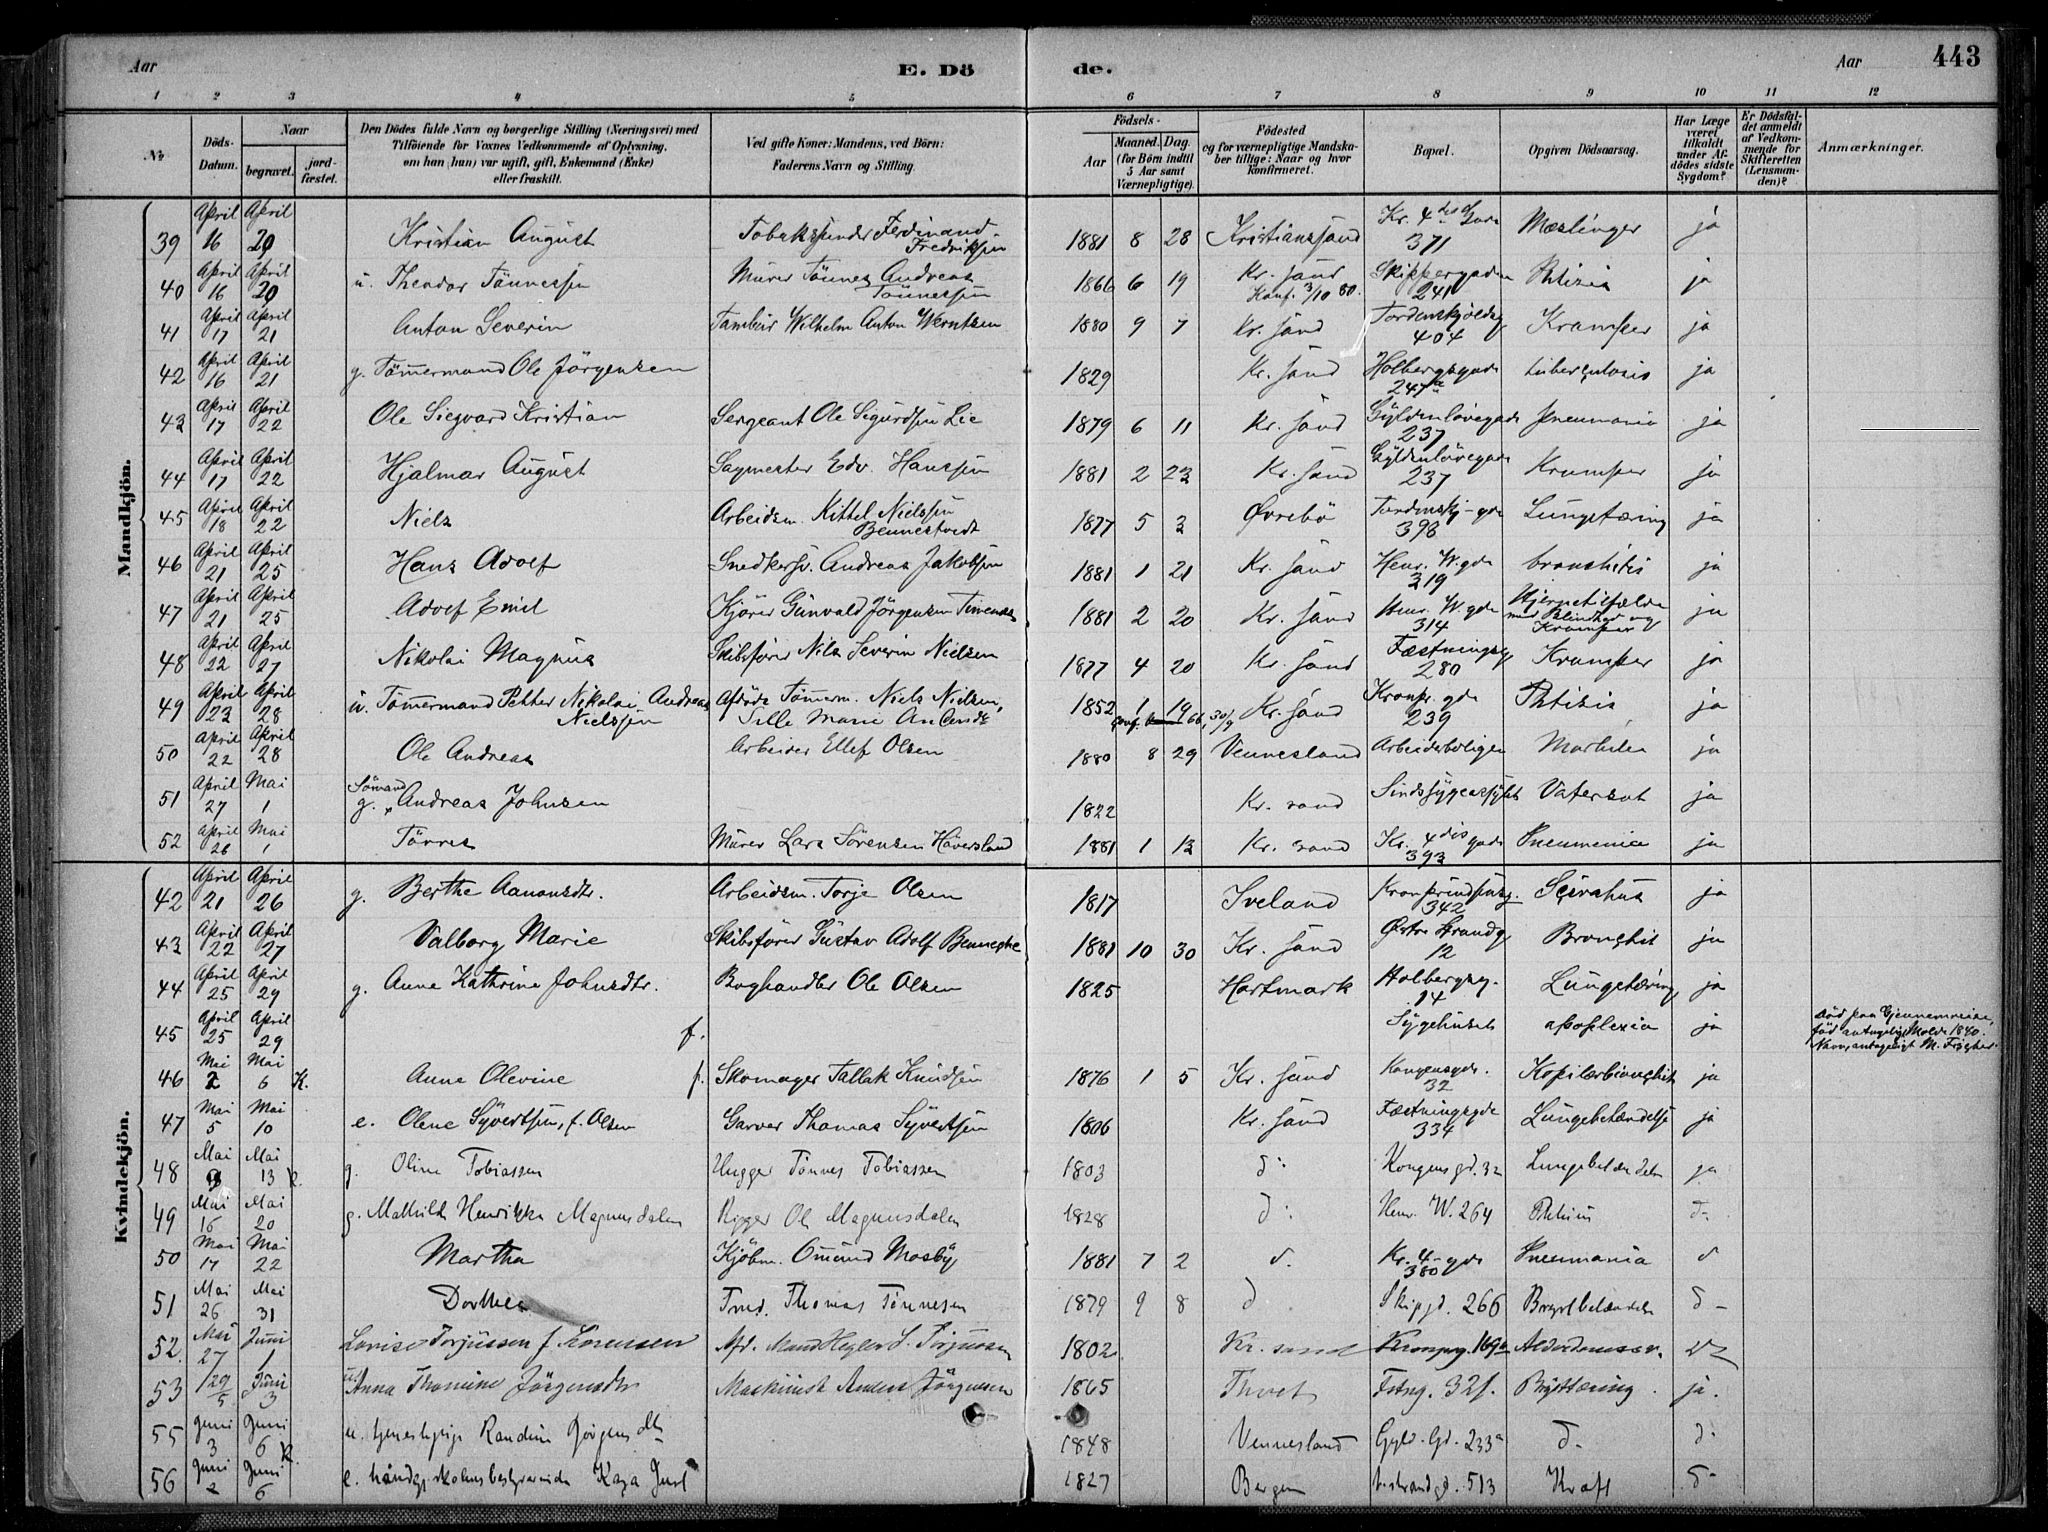 Aar E. Dö de. Aar 443
1 2 3 4 5 6 7 8 9 10 11 12
No. Döds-Datum. Naar begravet. jordfæstet. Den Dödes fulde Navn og borgerlige Stilling (Næringsvei) med Tilföiende for Voxnes Vedkommende af Oplysning, om han (hun) var ugift, gift, Enkemand (Enke) eller fraskilt. Ved gifte Koner: Mandens, ved Börn: Faderens Navn og Stilling. Födsels- Aar Maaned. Dag. (for Börn indtil 5 Aar samt Værnepligtige). Födested og for værnepligtige Mandskaber tillige: Naar og hvor konfirmeret. Bopæl. Opgiven Dödsaarsag. Har Læge været tilkaldt under Afdödes sidste Sygdom? Er Dödsfaldet anmeldt af Vedkommende for Skifteretten (Lensmanden)? Anmærkninger.
Mandkjön.
39 April 16 April 20 Kristian August Ferdinand Fredriksen 1881 8 28 Kristianssand Kr. 4 des 371 Mæslinger ja
40 April 16 April 20 u. Theodor Tönnessen Murer Tönnes Andreas Tönnessen 1866 6 19 Kr. sand Konf. 3/10 80. Skippergaden 241 Phtisis ja
41 April 17 April 21 Anton Severin Tambur Wilhelm Anton Werntzen 1880 9 7 Kr. sand Tordenskjoldsg 404 Kramper ja
42 April 16 April 21 g. Tömmermand Ole Jörgensen 1829 Kr. sand Holbergsgade 247a tuberculosis ja
43 April 17 April 22 Ole Siegvard Kristian Sergeant Ole Sigurdsen Lie 1879 6 11 Kr. sand Gyldenlövegade 237 Pneumonia ja
44 April 17 April 22 Hjalmar August Sagmester Edv. Hanssen 1881 2 23 Kr. sand Gyldenlövegade 237 Kramper ja
45 April 18 April 22 Niels Arbeidsm. Kittel Nielssen Bennestvedt 1877 5 3 Øvrebö Tordenskj-gde 398 Lungetæring ja
46 April 21 April 25 Hans Adolf Snedkersv. Andreas Jakobsen 1881 1 21 Kr. sand Henr. W. gde 319 bronchitis ja
47 April 21 April 25 Adolf Emil Kjörer Gunvald Jörgensen Timenes 1881 2 20 Kr. sand Henr. W. gde 314 Hjernetilfælde med Blindhed og Kramper ja
48 April 22 April 27 Nikolai Magnus Skibsförer Nils Severin Nielsen 1877 4 20 Kr. sand Fæstningsg 280 Kramper ja
49 April 23 April 28 u. Tömmermand Petter Nikolai Andreas Nielssen Afdöde Tömmerm. Niels Nielsen, Tille Marie 1852 1 19 conf. 66, 30/9 Kr. sand Kronpr. gde 239 Phtisis ja
50 April 22 April 28 Ole Andreas Arbeider Ellef Olsen 1880 8 29 Vennesland Arbeiderboligen ja
51 April 27 Mai 1 Sömand g. Andreas Johnsen 1822 Kr. sand Sindssygeasylet Vatersot ja
52 April 26 Mai 1 Törres Murer Lars Sörensen Höversland 1881 1 13 Kr. sand Kr. 4 des gade 393 Pneumonia ja
Kvindekjön.
42 April 21 April 26 g. Berthe Aanonsdtr. Arbeidsm. Torje Olsen 1817 Iveland Kronprindsensg. 342 ja
43 April 22 April 27 Valborg Marie Skibsförer Gustav Adolf Benneche 1881 10 30 Kr. sand Østre Strandg 12 Bronchit ja
44 April 25 April 29 g. Anne Kathrine Johnsdtr. Boghandler Ole Olsen 1825 Hartmark Holbergsg. 14 Lungetæring ja
45 April 25 April 29 f. Sygehuset apoplexia ja Död paa Gjennemreise, föd antagelig Molde 1840. Navn antageligt M.
46 Mai 2 Mai 6 K. Anne Olevine f. Skomager Tallak Knudsen 1876 1 5 Kr. sand Kongensgde. 32 Kapilærbronchit ja
47 Mai 5 Mai 10 e. Olene Syvertsen, f. Olsen Garver Thomas Syvertsen 1806 Kr. sand Fæstningsgde 334 Lungebetændelse ja
48 Mai 9 Mai 13 K. g. Oline Tobiassen Hugger Tönnes Tobiassen 1803 d: Kongensgd. 32 Lungebetændelse ja
49 Mai 16 Mai 20 g. Mathilde Henrikke Magnusdalen Rigger Ole Magnusdalen 1828 d: Henr. W. 264 Phthisis d-
50 Mai 17 Mai 22 Martha Kjöbm. Omund Mosby 1881 7 2 d. Kr. 4- gde 380 Pneumonia d
51 Mai 26 Mai 31 Dorthea Tmd. Thomas Tönnesen 1879 9 8 d Skipgd. 266 Brystbetændelse d-
52. Mai 27 Juni 1 Lovise Torjussen f. Lorensen Afd. S. Torjussen 1802 Kr. sand Kronprg. 169a
53 29/5 Juni 3 Anna Thomine Jörgensdtr Maskinist Anders Jörgensen 1865 Thvet Fstng. 321. Brysttæring ja.
55 Juni 3 Juni 6 K. u. tjenestepige Randine Jörgensdtr 1848 Vennesland Gyld. Gd. 233a d- d-
56 Juni 2 Juni 6 e. Kaja Juel 1827 Bergen 513 Kræft d-